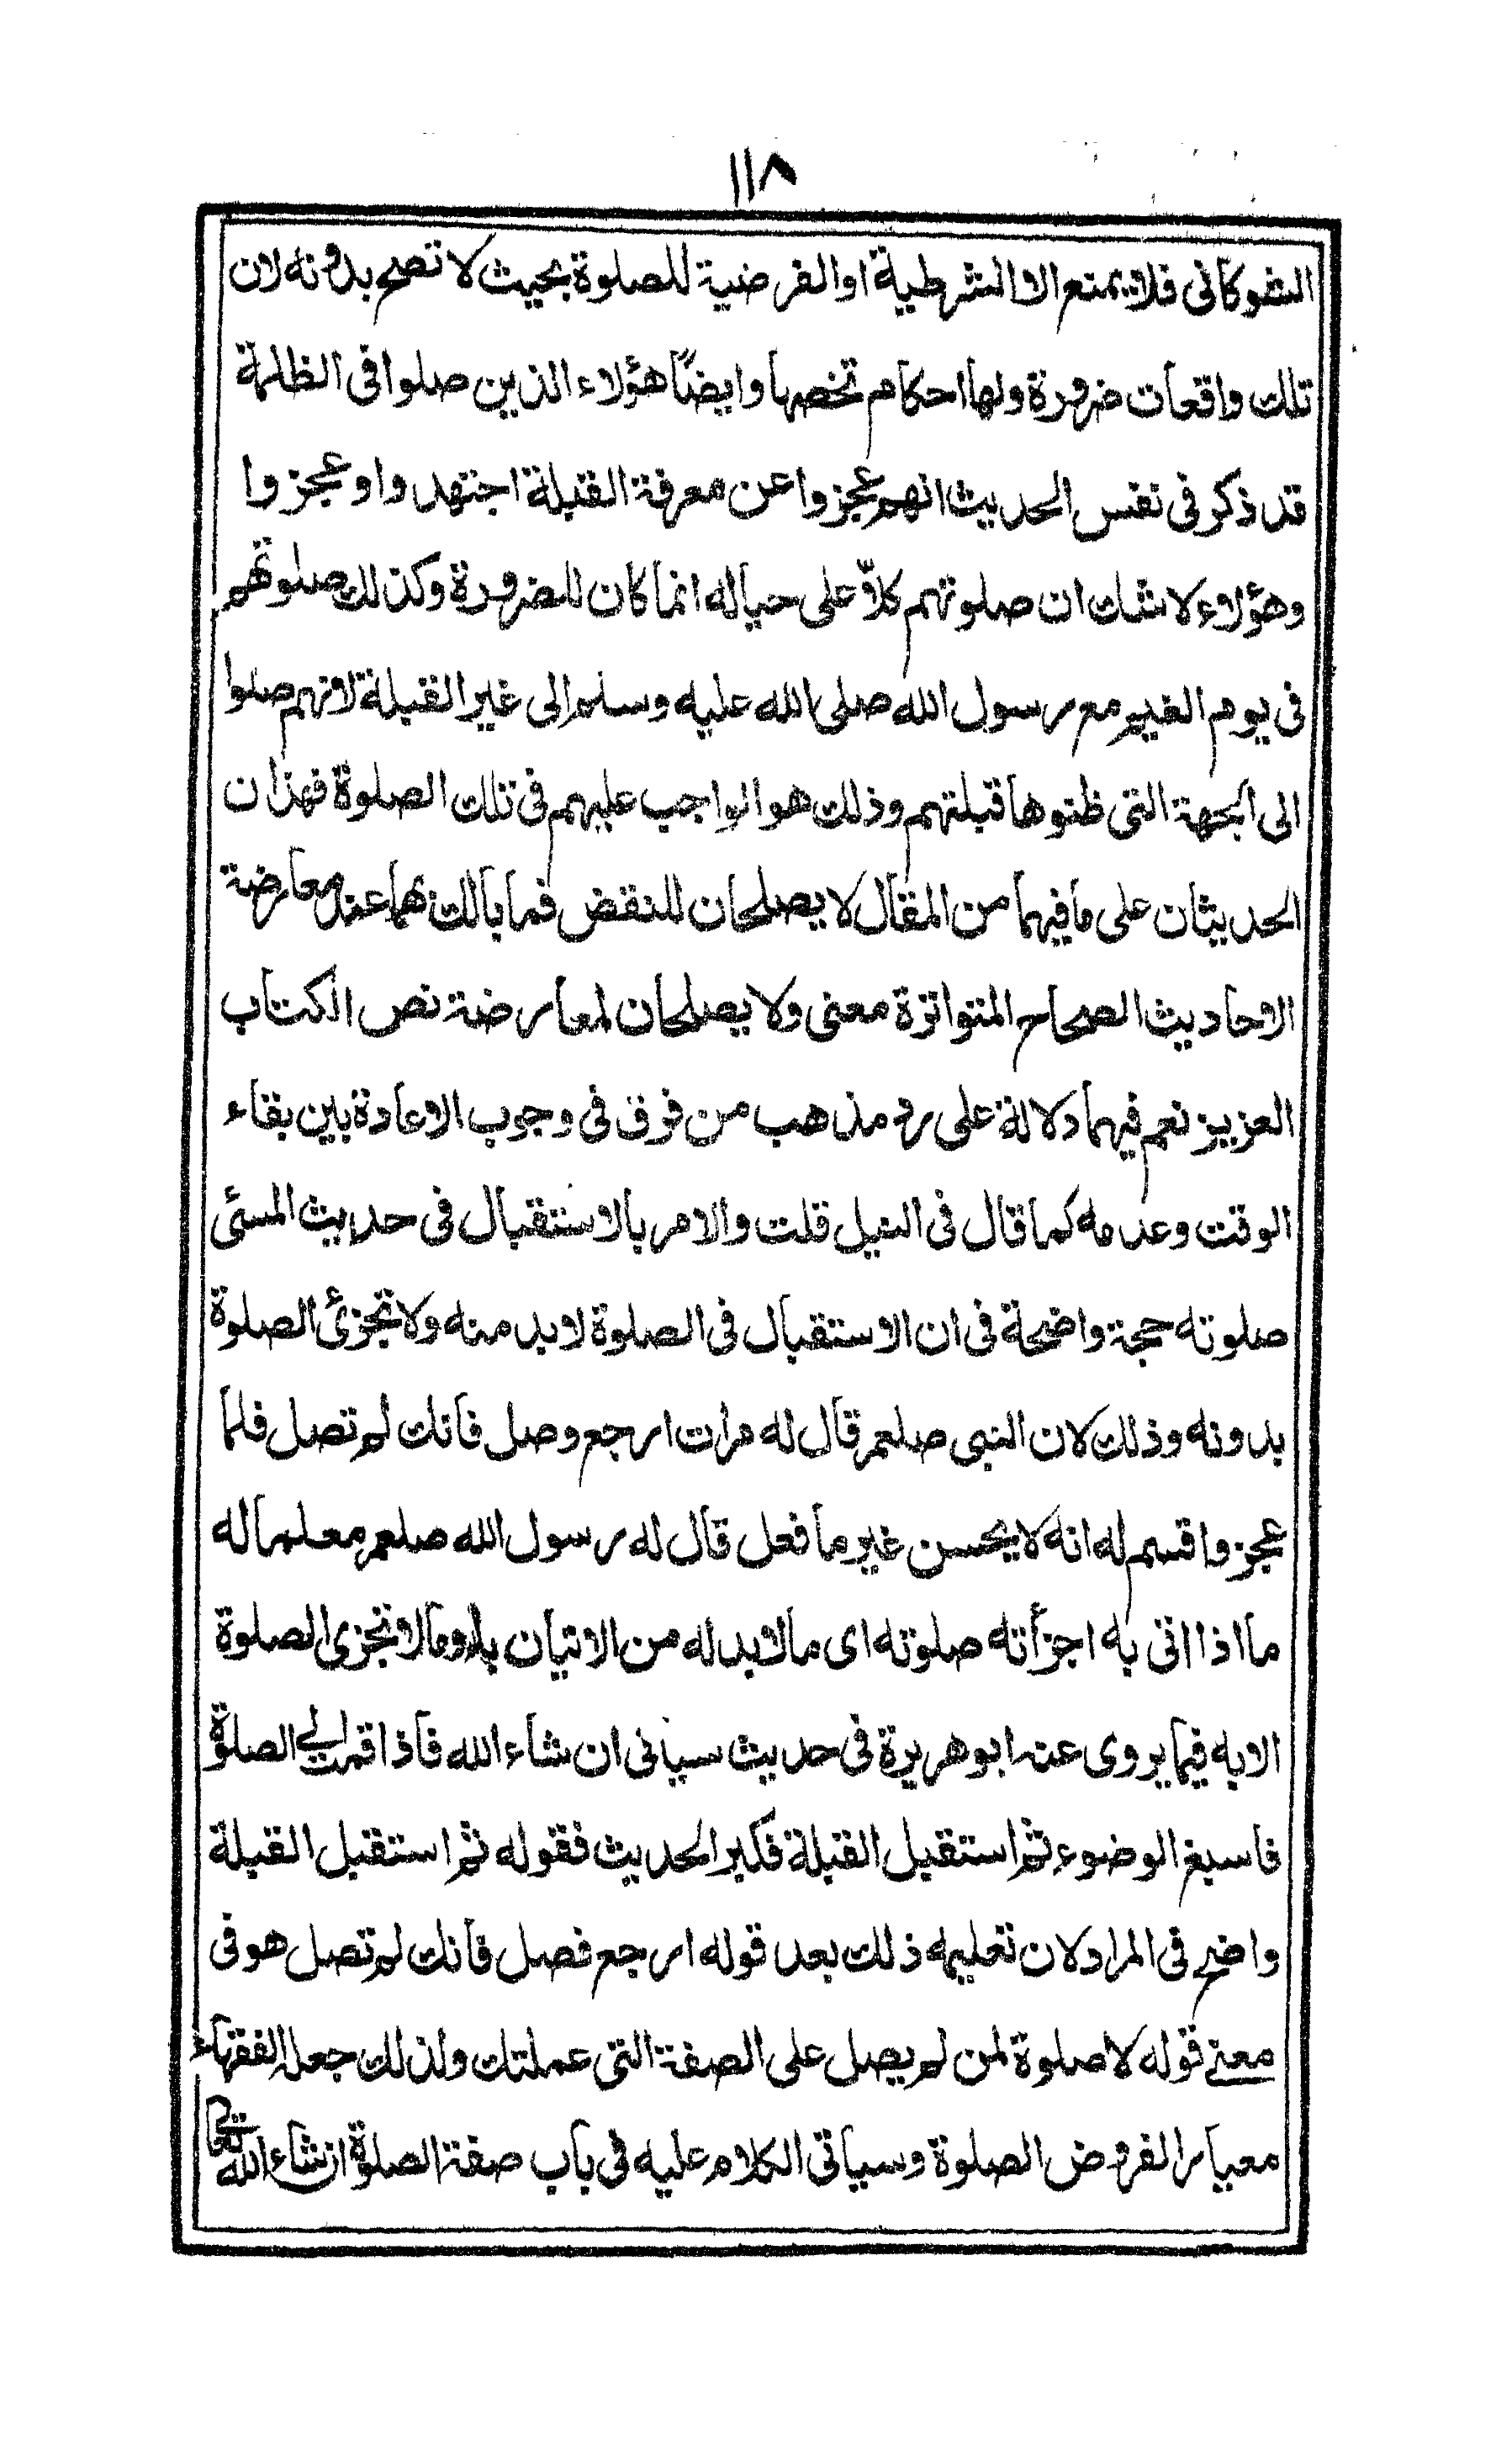 ١١٨
الشوكانى فلا يمنع الا الشرطية او الفرضية للصلوة بحيث لا تصح بدونه لان
تلك واقعات ضرورة ولها احكام تخصها وايضًا هؤلاء الذين صلوا فى الظلمة
قد ذكر فى نفس الحديث انهم عجزوا عن معرفة القبلة اجتهدوا وعجزوا
وهؤلاء لا شك ان صلوتهم كلاًّ على حياله انما كان للضرورة وكذلك صلوتهم
فى يوم الغيم مع رسول الله صلى الله عليه وسلم الى غير القبلة لانهم صلوا
الى الجهة التى ظنوها قبلتهم وذلك هو الواجب عليهم فى تلك الصلوة فهذان
الحديثان على ما فيهما من المقال لا يصلحان للنقض فما بالك بهما عند معارضة
الاحاديث الصحاح المتواترة معنى ولا يصلحان لمعارضة نص الكتاب
العزيز نعم فيهما دلالة على رد مذهب من فرق فى وجوب الاعادة بين بقاء
الوقت وعدمه كما قال فى النيل قلت والامر بالاستقبال فى حديث المسئى
صلوته حجة واضحة فى ان الاستقبال فى الصلوة لابد منه ولا تجزئ الصلوة
بدونه وذلك لان النبى صلعم قال له مرات ارجع وصل فانك لم تصل فلما
عجز واقسم له انه لا يحسن غير ما فعل قال له رسول الله صلعم معلما له
ما اذا اتى به اجزأته صلوته اى ما لابد له من الاتيان به وما لا تجزى الصلوة
الا به فيما يروى عنه ابو هريرة فى حديث سيأتى ان شاء الله فاذا قمت الى الصلوة
فاسبغ الوضوء ثم استقبل القبلة فكبر الحديث فقوله ثم استقبل القبلة
واضح فى المراد لان تعليمه ذلك بعد قوله ارجع فصل فانك لم تصل هو فى
معنى قوله لا صلوة لمن لم يصل على الصفة التى عملتك ولذلك جعله الفقهاء
معيار الفروض الصلوة وسيأتى الكلام عليه فى باب صفة الصلوة ان شاء الله تعالى